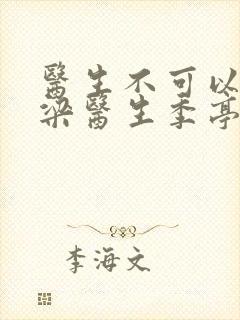 醫生不可以
梁醫生季亭
李海文